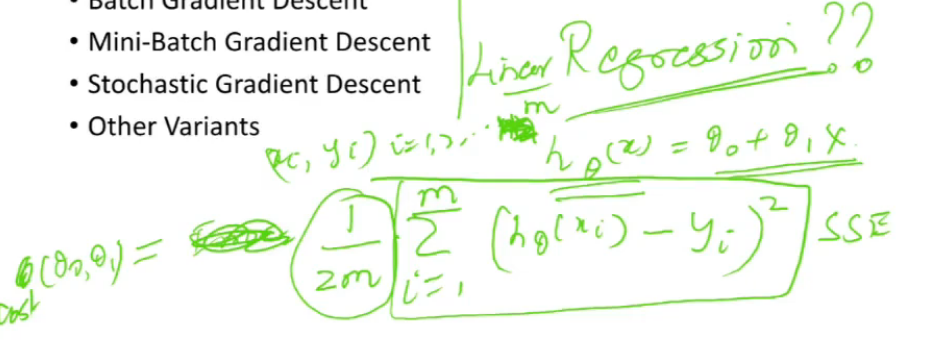 • Batch Gradient Descent
• Mini-Batch Gradient Descent
• Stochastic Gradient Descent
• Other Variants
Linear Regression ??
(xi, yi) i=1,2,.. m
hθ(x) = θ₀ + θ₁ x.
(θ₀,θ₁) = 1/2m m Σ i=1 (hθ(xi) - yi)² SSE
cost